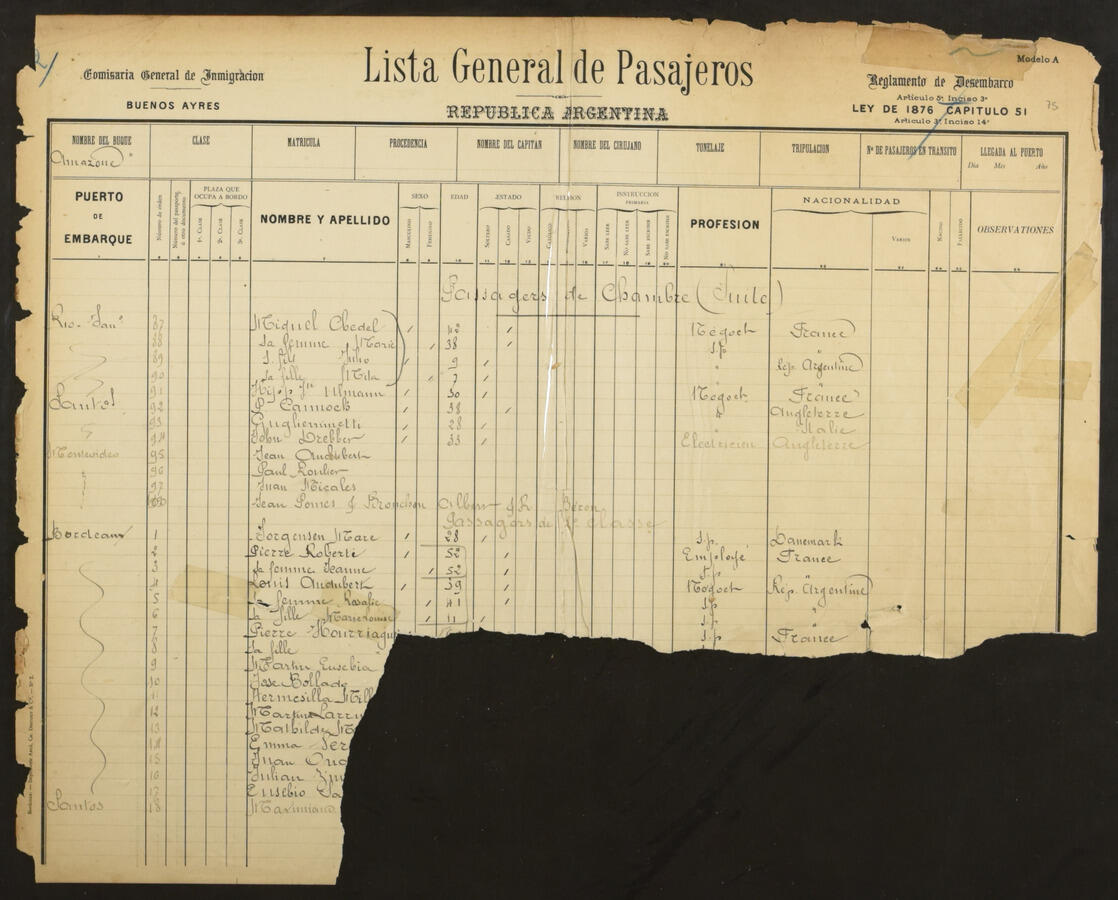 Comisaria General de Inmigracion
BUENOS AYRES
Lista General de Pasajeros
REPUBLICA ARGENTINA
Modelo A
Reglamento de Desembarco
Articulo 5º Inciso 3º
LEY DE 1876 CAPITULO 51
Articulo 3º Inciso 14º
75
NOMBRE DEL BUQUE CLASE MATRICULA PROCEDENCIA NOMBRE DEL CAPITAN NOMBRE DEL CIRUJANO TONELAJE TRIPULACION Nº DE PASAJEROS EN TRANSITO LLEGADA AL PUERTO
Dia Mes Año
Amazone
PUERTO DE EMBARQUE
Número de orden
Número del pasaporte ú otro documento
PLAZA QUE OCUPA A BORDO
1ª CLASE 2ª CLASE 3ª CLASE
NOMBRE Y APELLIDO
SEXO
MASCULINO FEMENINO
EDAD
ESTADO
SOLTERO CASADO VIUDO
RELIGION
CATÓLICO VARIOS
INSTRUCCION PRIMARIA
SABE LEER NO SABE LEER SABE ESCRIBIR NO SABE ESCRIBIR
PROFESION
NACIONALIDAD
VARIOS
NACIDO FALLECIDO
OBSERVATIONES
Passagers de Chambre (Suite)
87 Miguel Obedel 42 Négoct France
88 Sa femme Marie 38 s.p
89 S. fils Julio 9 " Rép. Argentine
90 Sa fille Mita 7
Santos 91 Ulmann 30 Négoct France
92 P. Cannock 38 " Angleterre
93 Guglieminetti 28 " Italie
94 John Drebber 33 Electricien Angleterre
Montevideo 95 Jean Audubert
96 Paul Roulier
97 Juan Nicales
Jean Pomes J Bronchon Albert J.R. Béron
Passagers de 2e Classe
Bordeaux 1 Jorgensen Mare 28 s.p. Danemark
2 Pierre Roberti 52 Employé France
3 Sa femme Jeanne 52 s.p
4 Louis Audubert 39 Négoct Rép. Argentine
5 Sa femme Rosalie 41 s.p "
6 Sa fille Marie Louise 11 s.p
7 Pierre s.p France
8 Sa fille
9 Martin Eusebia
10 Jose Bollado
11 Hermesilla
12 Martin Larr
13 Mathilde M
14 Emma
15 Juan
16 Julian
17 Eusebio
Santos 18 Maximiano